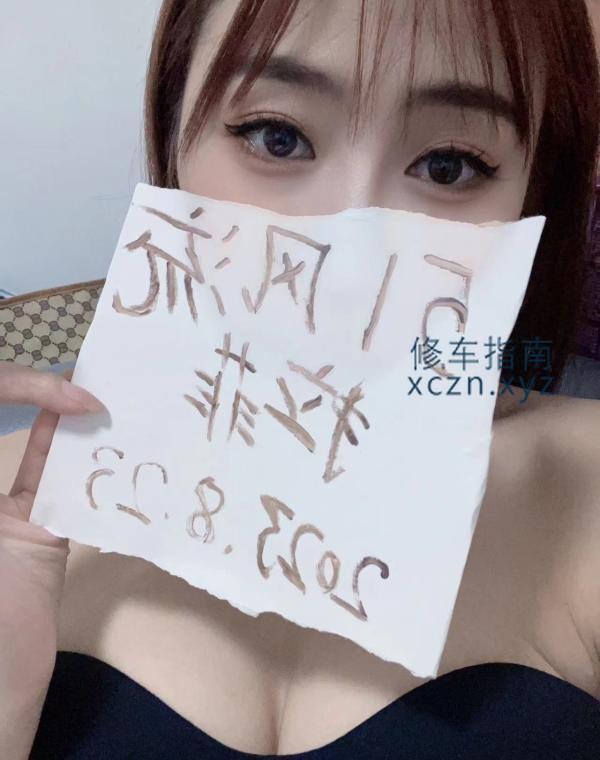 51风流
拉菲
2023.8.23
修车指南
xczn.xyz